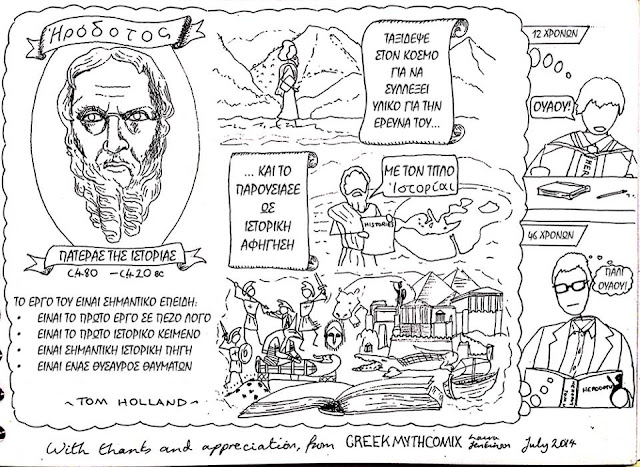 Ἡρόδοτος
ΠΑΤΕΡΑΣ ΤΗΣ ΙΣΤΟΡΙΑΣ
c480 — c420 BC
ΤΟ ΕΡΓΟ ΤΟΥ ΕΙΝΑΙ ΣΗΜΑΝΤΙΚΟ ΕΠΕΙΔΗ:
• ΕΙΝΑΙ ΤΟ ΠΡΩΤΟ ΕΡΓΟ ΣΕ ΠΕΖΟ ΛΟΓΟ
• ΕΙΝΑΙ ΤΟ ΠΡΩΤΟ ΙΣΤΟΡΙΚΟ ΚΕΙΜΕΝΟ
• ΕΙΝΑΙ ΣΗΜΑΝΤΙΚΗ ΙΣΤΟΡΙΚΗ ΠΗΓΗ
• ΕΙΝΑΙ ΕΝΑΣ ΘΥΣΑΥΡΟΣ ΘΑΥΜΑΤΩΝ
~ TOM HOLLAND ~
ΤΑΞΙΔΕΨΕ
ΣΤΟΝ ΚΟΣΜΟ
ΓΙΑ ΝΑ
ΣΥΛΛΕΞΕΙ
ΥΛΙΚΟ ΓΙΑ ΤΗΝ
ΕΡΕΥΝΑ ΤΟΥ...
... ΚΑΙ ΤΟ
ΠΑΡΟΥΣΙΑΣΕ
ΩΣ
ΙΣΤΟΡΙΚΗ
ΑΦΗΓΗΣΗ
ΜΕ ΤΟΝ ΤΙΤΛΟ
Ἱστορίαι
HISTORIES
12 ΧΡΟΝΩΝ
ΟΥΑΟΥ!
HER
46 ΧΡΟΝΩΝ
ΠΑΛΙ
ΟΥΑΟΥ!
HERODOTUS
With thanks and appreciation, from GREEKMYTHCOMIX Laura Jenkinson July 2014